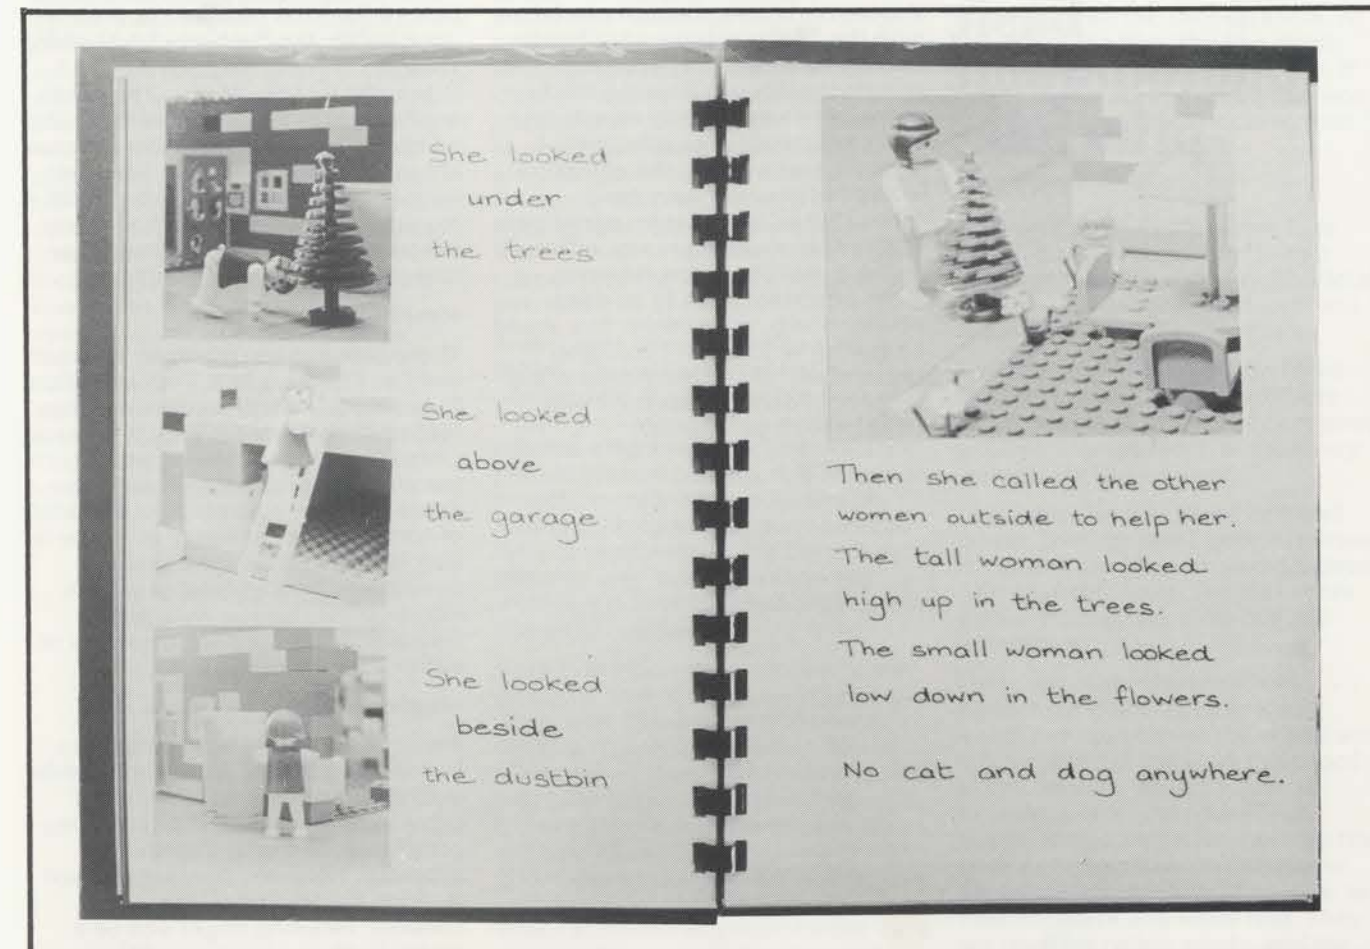 She looked
under
the trees
She looked
above
the garage
She looked
beside
the dustbin
Then she called the other
women outside to help her.
The tall woman looked
high up in the trees.
The small woman looked
low down in the flowers.
No cat and dog anywhere.